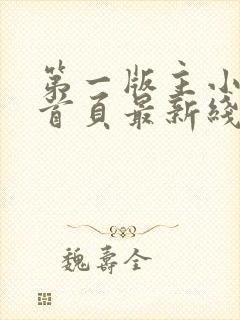 第一版主小
首頁最新綫
魏壽全